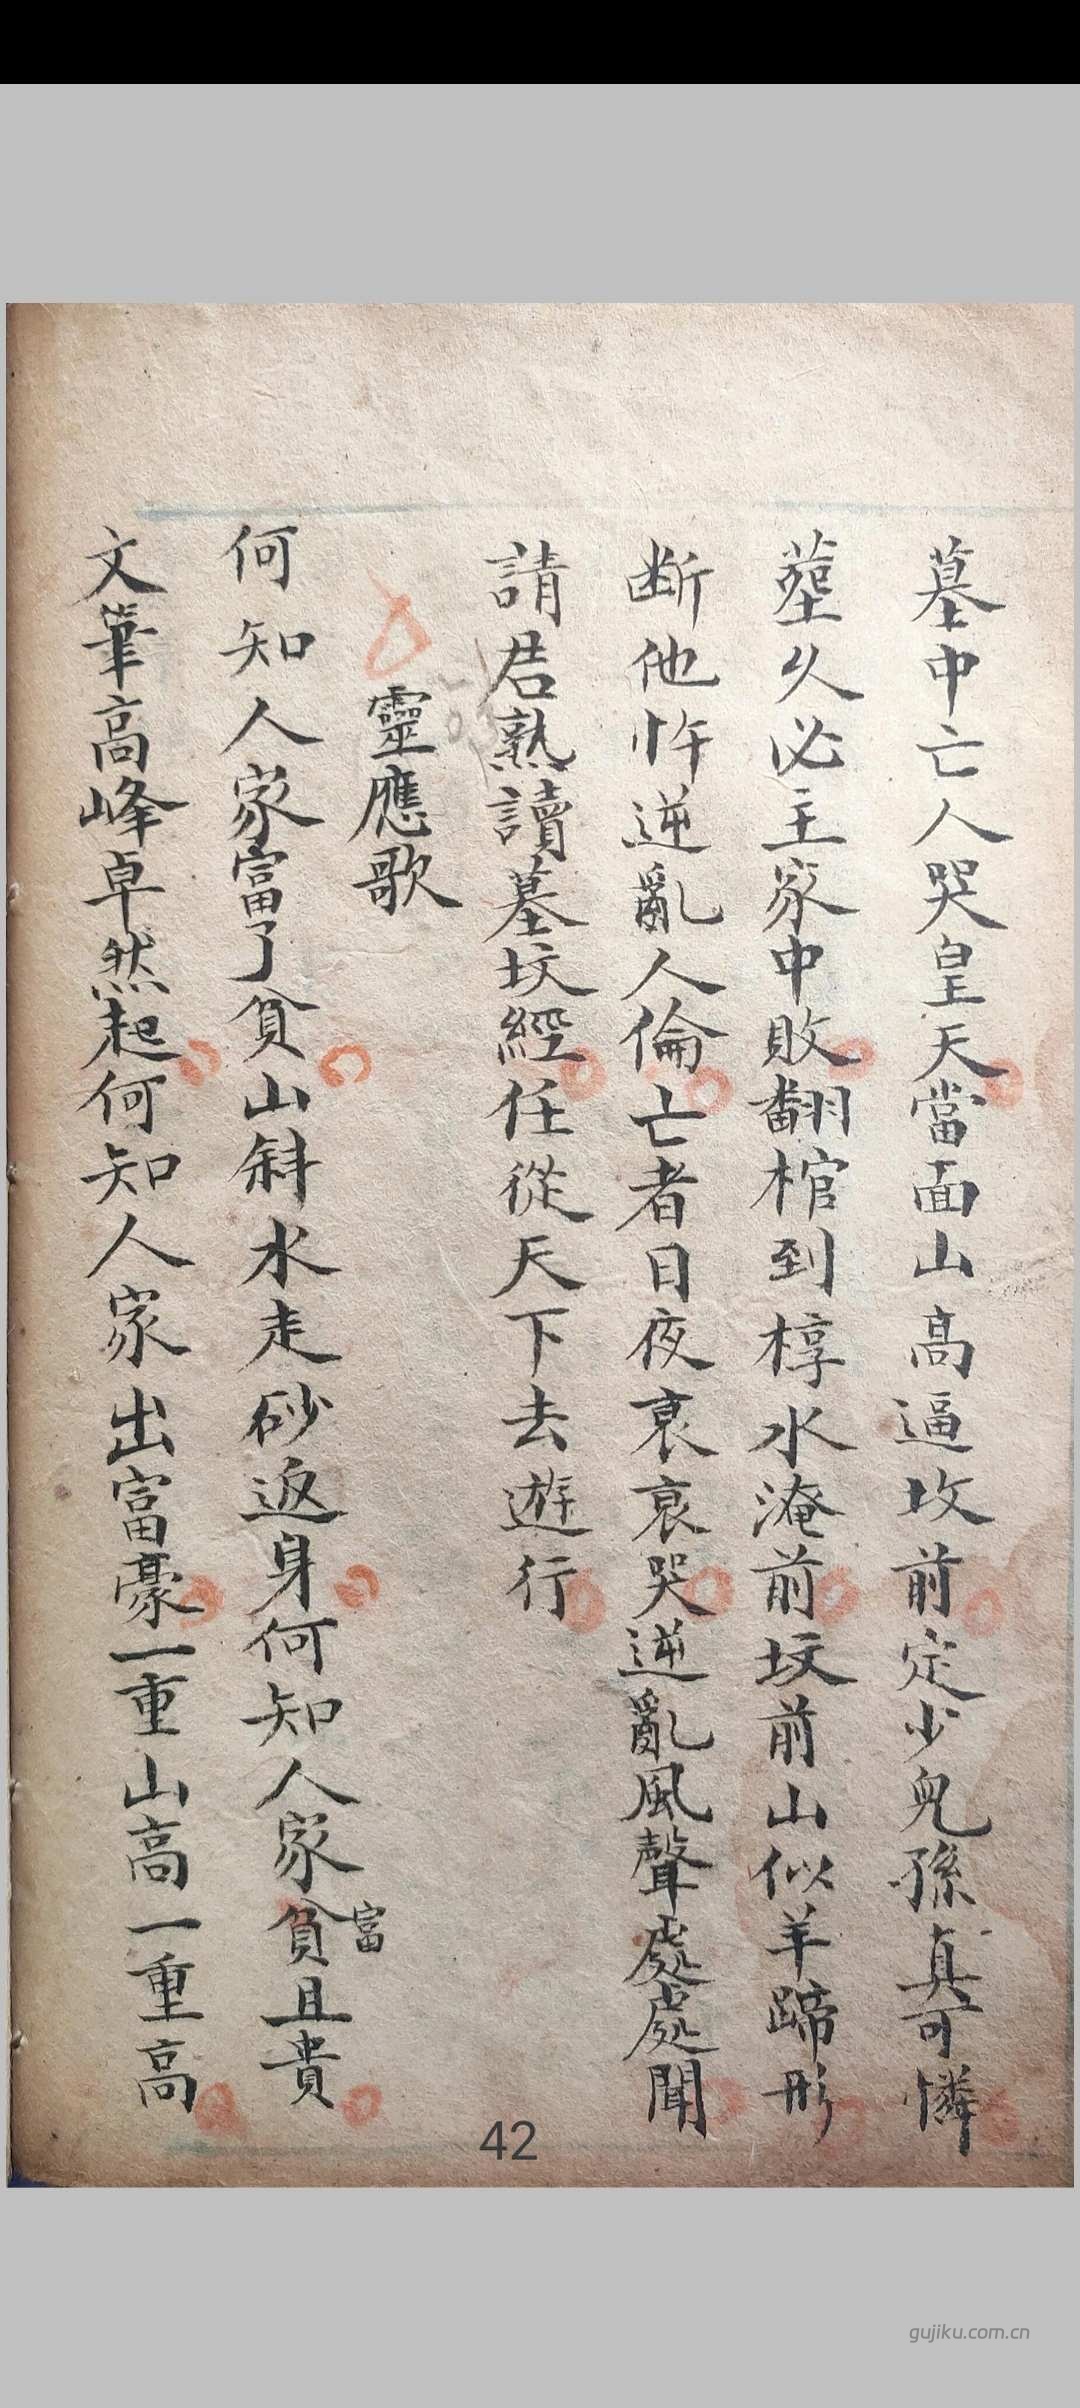 墓中亡人哭皇天當面山高逼坟前定少兒孫真可憐
葬久必主家中敗翻棺到椁水淹前坟前山似羊蹄形
断他忤逆亂人倫亡者日夜哀哀哭逆亂風聲處處聞
請君熟讀墓坟經任從天下去遊行
靈應歌
何知人家富了貧山斜水走砂返身何知人家貧富且貴
文筆高峰卓然起何知人家出富豪一重山高一重高
42
gujiku.com.cn